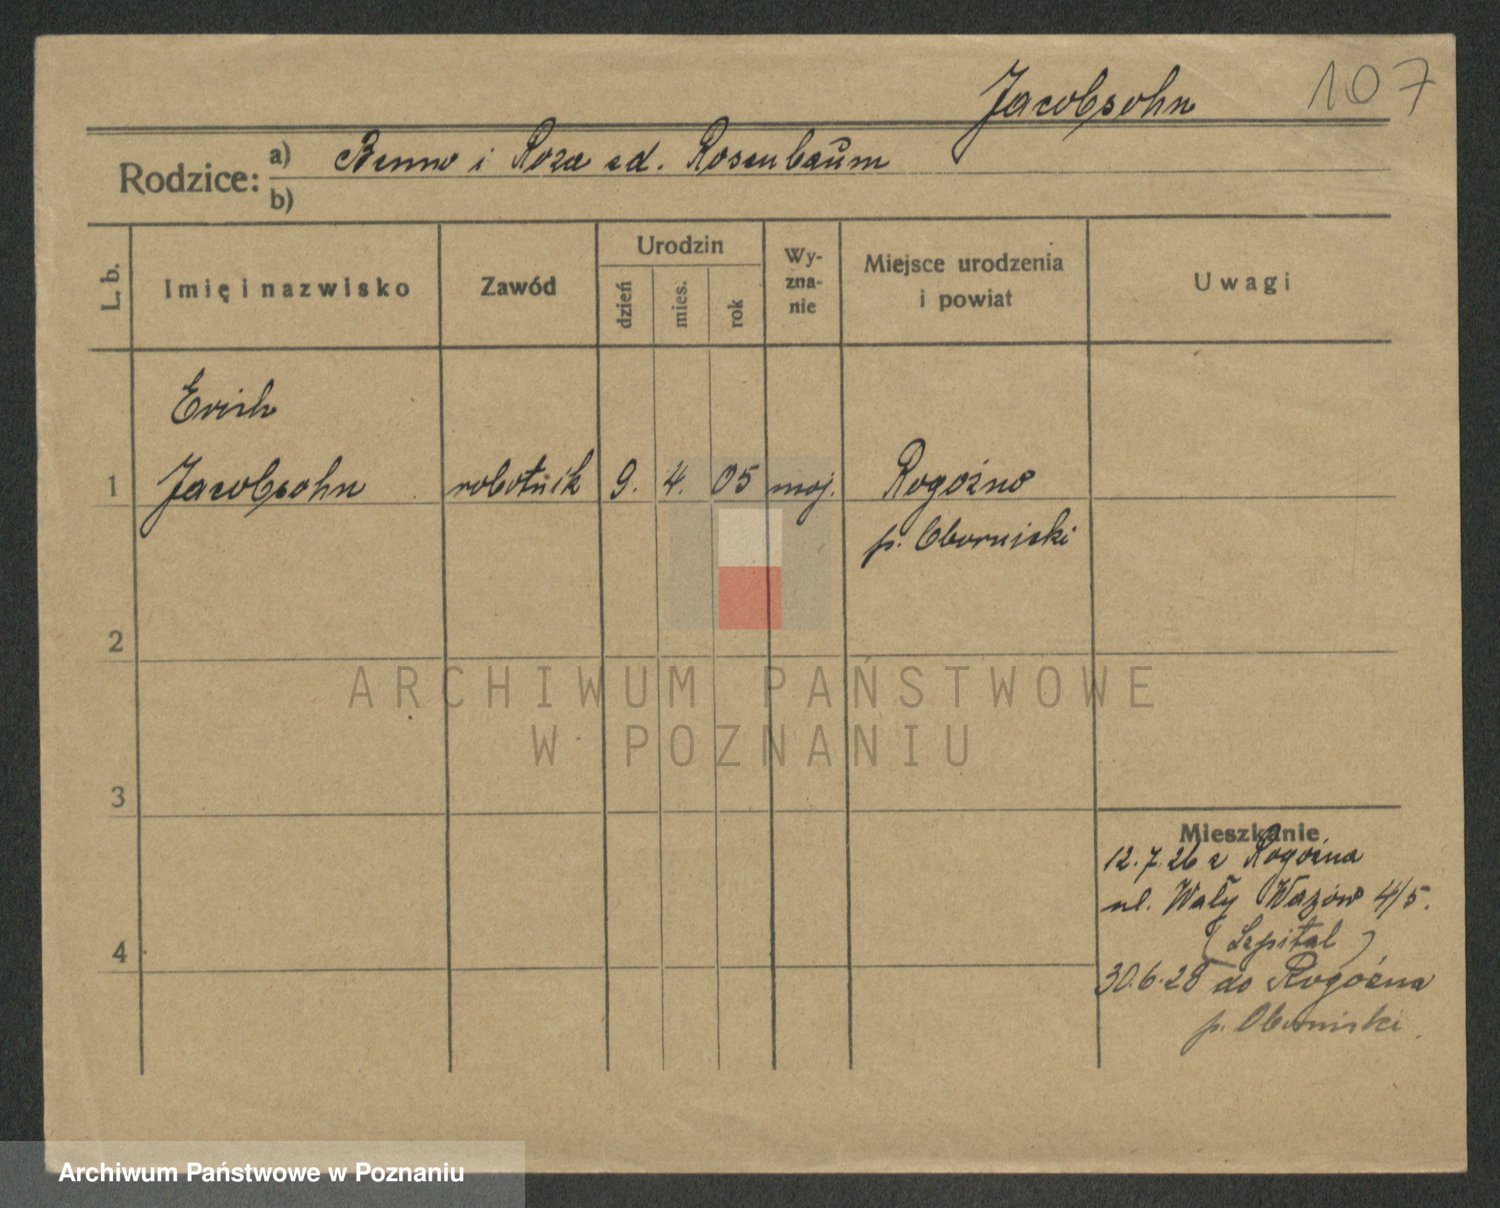 Jacobsohn 107
Rodzice: a) Benno i Roza zd. Rosenbaum
b)
L. b. Imię i nazwisko Zawód Urodzin dzień mies. rok Wy-zna-nie Miejsce urodzenia i powiat Uwagi
Erich
1 Jacobsohn robotnik 9. 4. 05 moj. Rogoźno
p. Obornicki
2
ARCHIWUM PAŃSTWOWE
W POZNANIU
3
Mieszkanie
12.7.26 z Rogoźna
ul. Wały Wazów 4/5.
(Szpital)
4
30.6.28 do Rogoźna
p. Obornicki
Archiwum Państwowe w Poznaniu